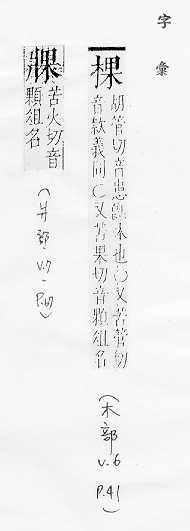 字彙
棵
胡管切音患斷木也○又苦管切
音款義同○又苦果切音顆俎名
(木部
v.6
p.41)
苦火切音
顆俎名
(爿部
v.7